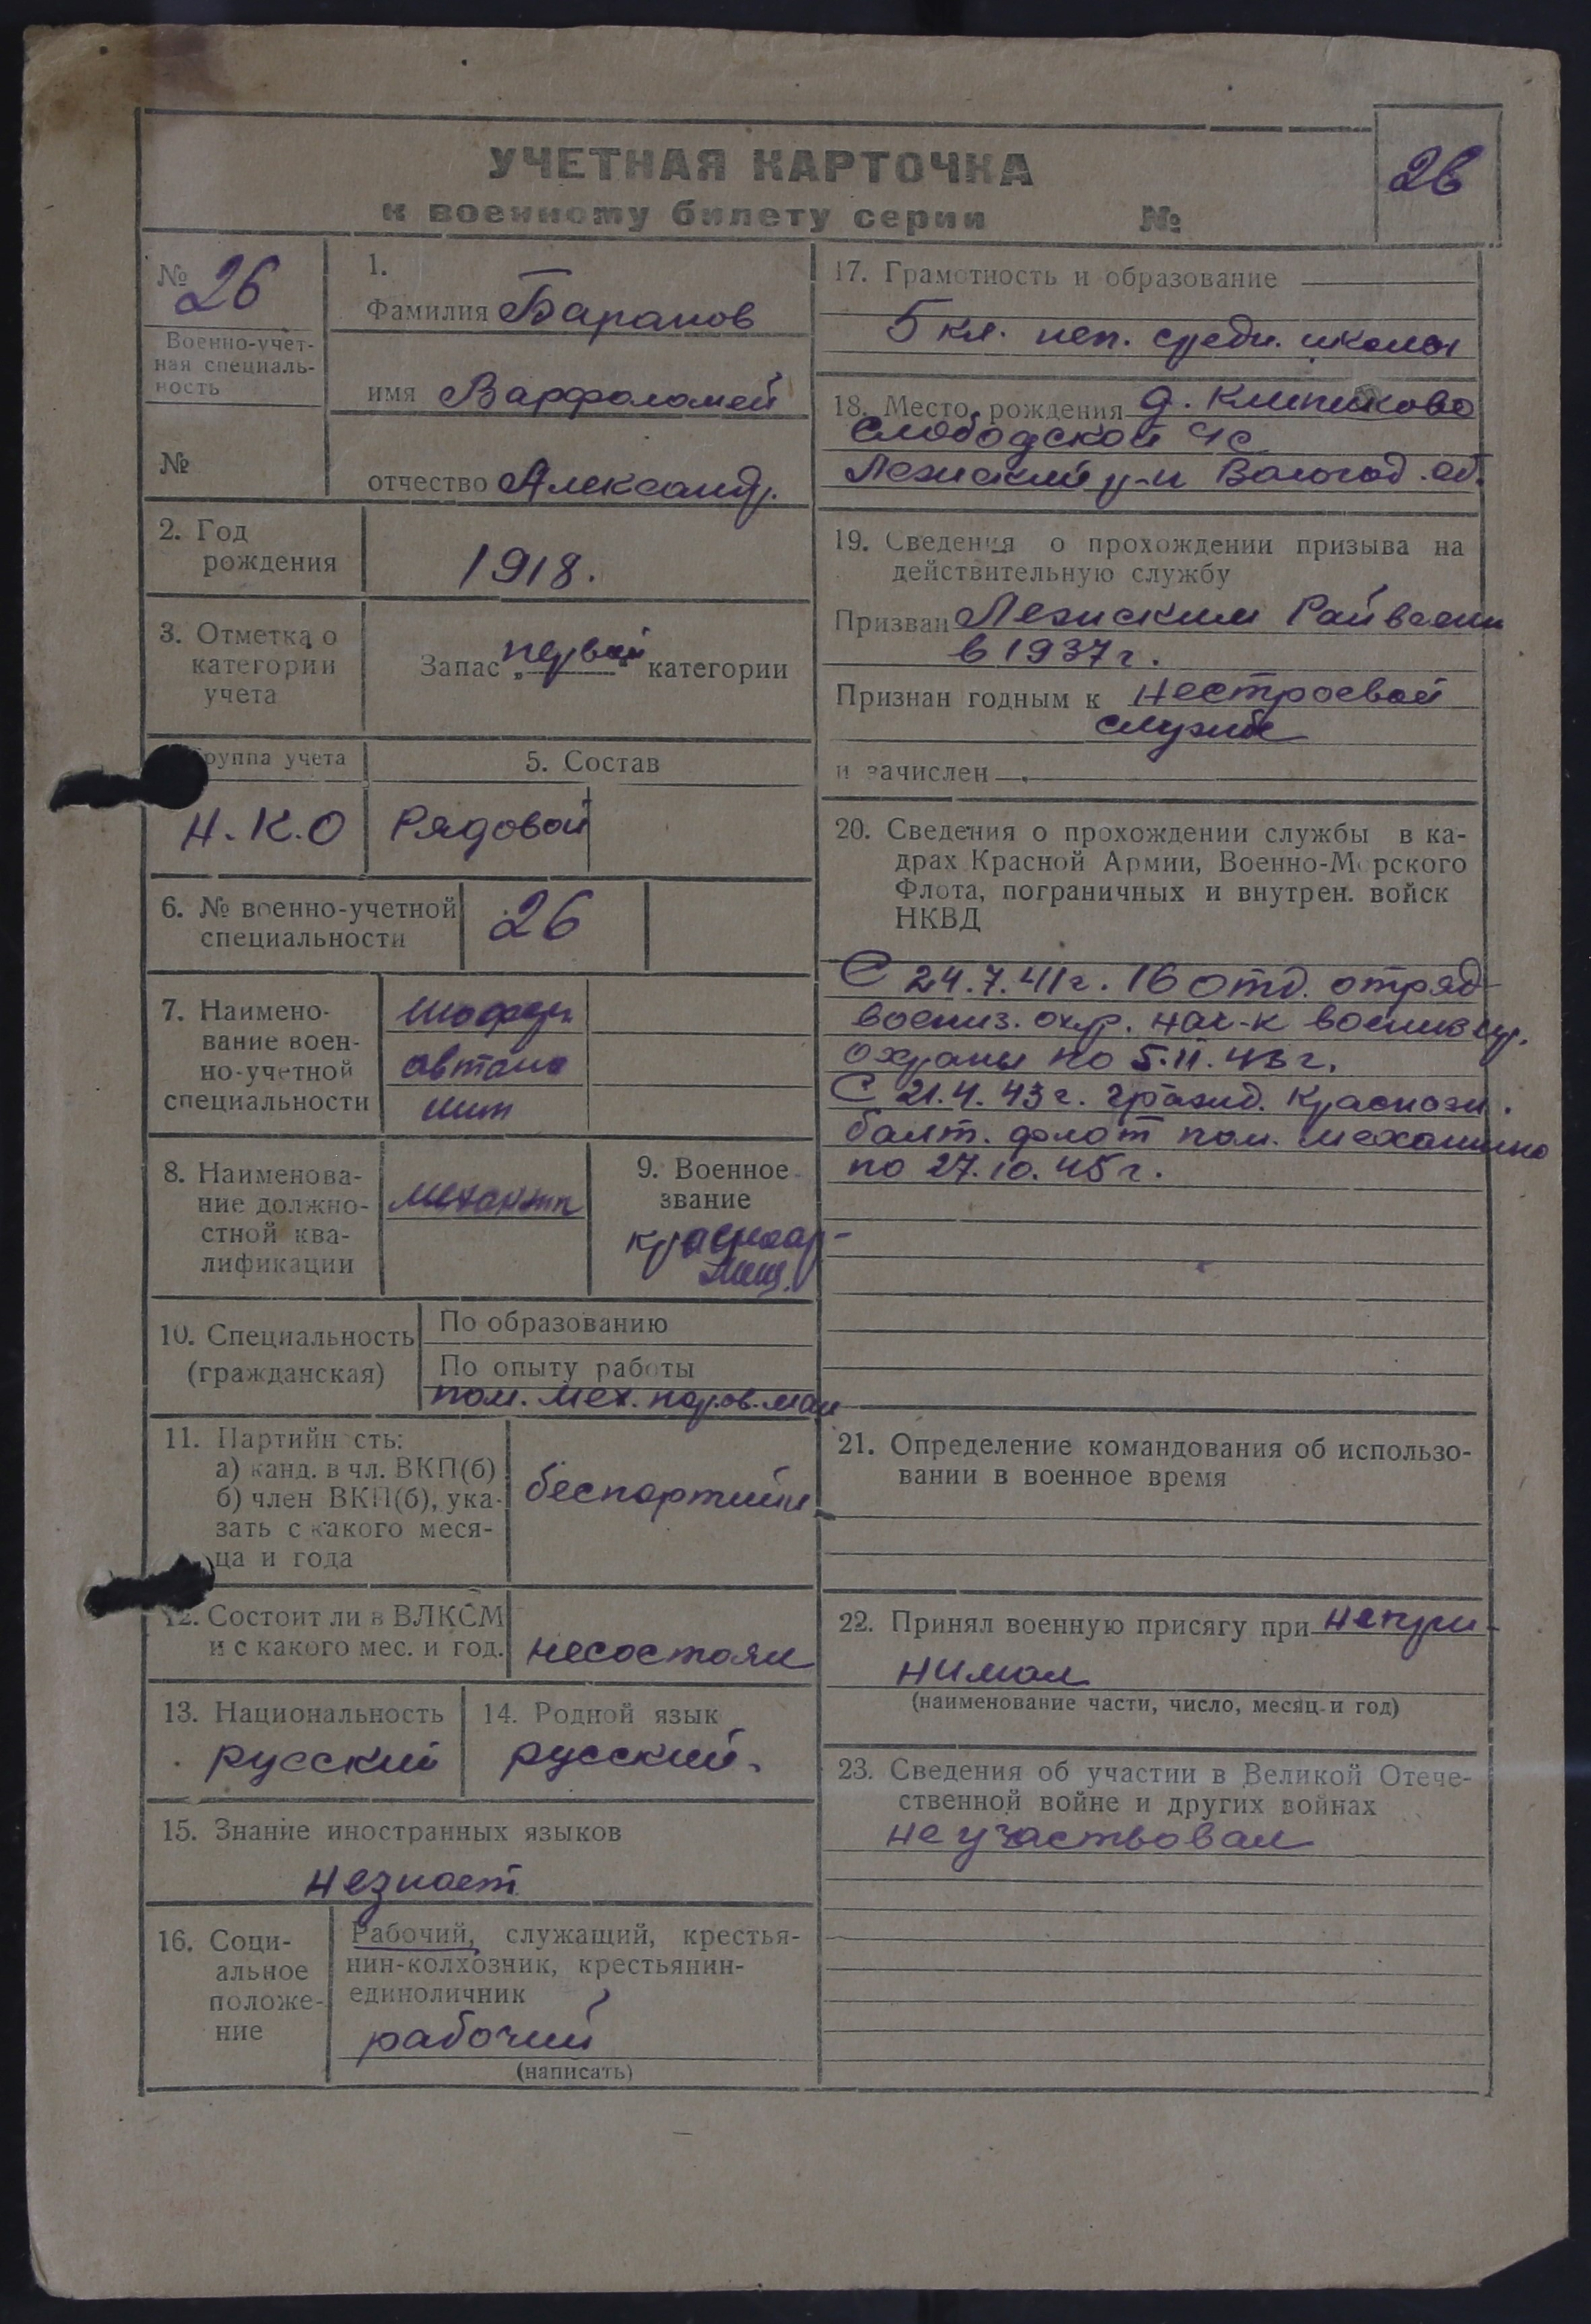 УЧЕТНАЯ КАРТОЧКА
к военному билету серии №
26
№ 26
Военно-учет-
ная специаль-
ность
№
1.
Фамилия Баранов
имя Варфоломей
отчество Александр.
2. Год
рождения
1918.
3. Отметка о
категории
учета
Запас „первой“ категории
Группа учета
Н.К.О
5. Состав
Рядовой
6. № военно-учетной
специальности
26
7. Наимено-
вание воен-
но-учетной
специальности
шофер
автомо
8. Наименова-
ние должно-
стной ква-
лификации
9. Военное
звание
красноар-
меец.
10. Специальность
(гражданская)
По образованию
По опыту работы
пом. мех. паров. маш
11. Партийн сть:
а) канд. в чл. ВКП(б)
б) член ВКП(б), ука-
зать с какого меся-
ца и года
беспартийн
12. Состоит ли в ВЛКСМ
и с какого мес. и год.
несостоял
13. Национальность
русский
14. Родной язык
русский.
15. Знание иностранных языков
незнает
16. Соци-
альное
положе-
ние
Рабочий, служащий, крестья-
нин-колхозник, крестьянин-
единоличник
рабочий
(написать)
17. Грамотность и образование
5 кл. неп. средн. школы
18. Место рождения д.
Слободской с/с
Лежский р-н Вологод. об.
19. Сведения о прохождении призыва на
действительную службу
Призван Лежским Райвоен
в 1937 г.
Признан годным к нестроевой
службе
и зачислен
20. Сведения о прохождении службы в ка-
драх Красной Армии, Военно-Морского
Флота, пограничных и внутрен. войск
НКВД
С 24.7.41 г. 16 отд. отряд
воениз. охр. нач-к
охраны по 5.II.43 г.
С 21.4.43 г. Краснозн.
балт. флот пом. механика
по 27.10.45 г.
21. Определение командования об использо-
вании в военное время
22. Принял военную присягу при непри-
нимал
(наименование части, число, месяц и год)
23. Сведения об участии в Великой Отече-
ственной войне и других войнах
не участвовал